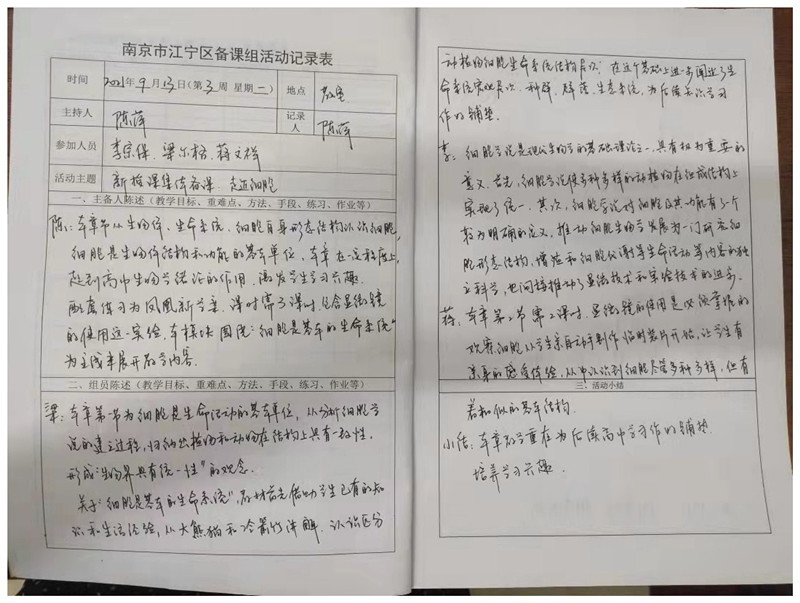 南京市江宁区备课组活动记录表
时间 2021年9月13日(第3周 星期一) 地点 教室
主持人 陈萍 记录人 陈萍
参加人员 李宗保 梁尔格 蒋文祥
活动主题 新授课集体备课 走近细胞
一、主备人陈述(教学目标、重难点、方法、手段、练习、作业等)
陈:本章节从生物体、生命系统、细胞自身形态结构认识细胞,
细胞是生物体结构和功能的基本单位,本章在一定程度上
起到高中生物学绪论的作用,激发学生学习兴趣.
配套练习为凤凰新学案,课时需3课时,包含显微镜
的使用这一实验,本模块围绕"细胞是基本的生命系统"
为主线来展开教学内容.
二、组员陈述(教学目标、重难点、方法、手段、练习、作业等)
梁:本章第一节为细胞是生命活动的基本单位,从分析细胞学
说的建立过程,归纳出植物和动物在结构上具有一致性,
形成"生物界具有统一性"的观念.
关于"细胞是基本的生命系统",教材首先借助学生已有的知
识和生活经验,从大熊猫和冷箭竹讲解,认识区分
动植物细胞生命系统结构层次,在这个基础上进一步阐述了生
命系统实验层次,种群、群落、生态系统,为后续知识学习
作好铺垫.
李:细胞学说是现代生物学的基础理论之一,具有极为重要的
意义.首先,细胞学说使多种多样的动植物在组成结构上
实现了统一.其次,细胞学说对细胞及其功能有了个
较为明确的定义,推动细胞生物学发展为一门研究细
胞形态结构,增殖和细胞代谢等生命活动等内容的独
立科学,也间接推动了显微技术和实验技术的进步.
蒋:本章第2节需2课时.显微镜的使用是必须掌握的
观察细胞从学生亲自动手制作临时装片开始,让学生有
亲身的感受体验,从中认识到细胞尽管多种多样,但有
三、活动小结
着相似的基本结构.
小结:本章教学重在为后续高中学习作好铺垫.
培养学习兴趣.